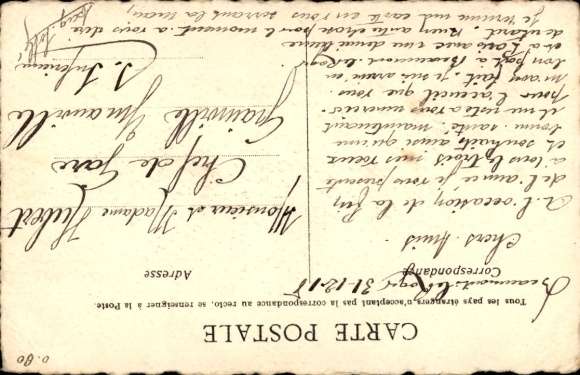 CARTE POSTALE
Tous les pays étrangers n'acceptant pas la correspondance au recto, se renseigner à la Poste.
Correspondance
Adresse
Beaumont le Roger 31-12-15
Chers Amis.
A l'occasion de la fin
de l'année je vous présente
à tous les trois mes vœux
et souhaits ainsi qu'une
bonne santé, maintenant
il me reste à vous remercier
pour l'accueil que vous
m'avez fait, je suis arrivé en
bon port à Beaumont le Roger
et à Paris avec une demi heure
de retard. Rien autre chose pour le moment à vous dire
je termine ma carte en vous serrant la main,
Monsieur et Madame Hubert
Chef de Gare
Grainville
Ymauville
S. Inférieure
0.80